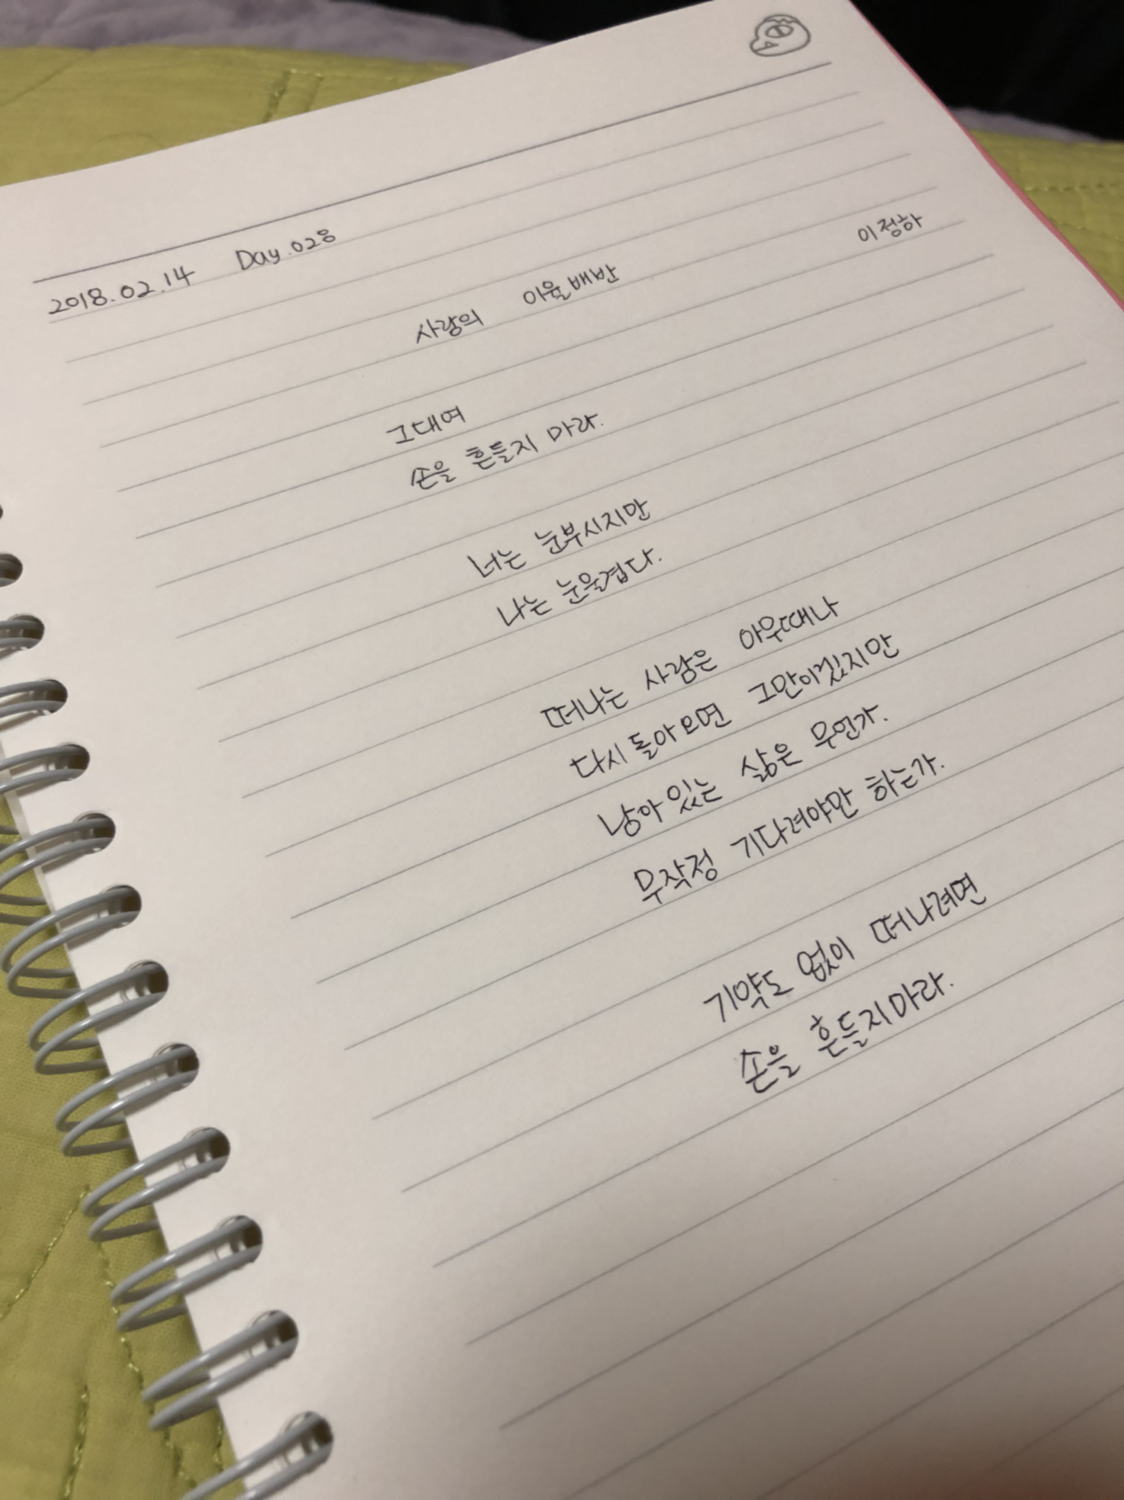 2018.02.14 Day.028
사랑의 이율배반
이정하
그대여
손을 흔들지 마라.
너는 눈부시지만
나는 눈물겹다.
떠나는 사람은 아무때나
다시 돌아오면 그만이겠지만
남아 있는 삶은 무언가.
무작정 기다려야만 하는가.
기약도 없이 떠나려면
손을 흔들지 마라.